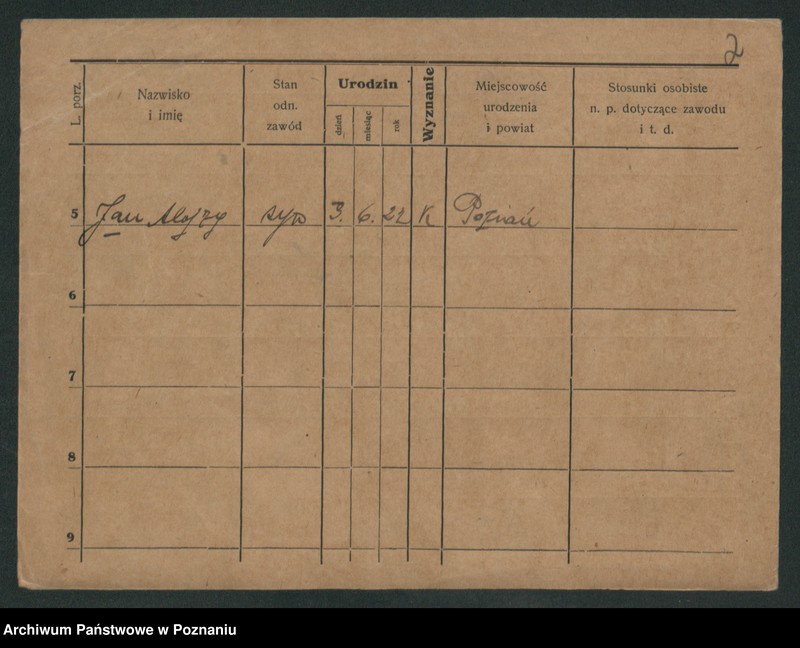 2
L. porz.
Nazwisko
i imię
Stan
odn.
zawód
Urodzin
dzień
miesiąc
rok
Wyznanie
Miejscowość
urodzenia
i powiat
Stosunki osobiste
n. p. dotyczące zawodu
i t. d.
5 Jan Alojzy syn 3. 6. 22 K Poznań
6
7
8
9
Archiwum Państwowe w Poznaniu